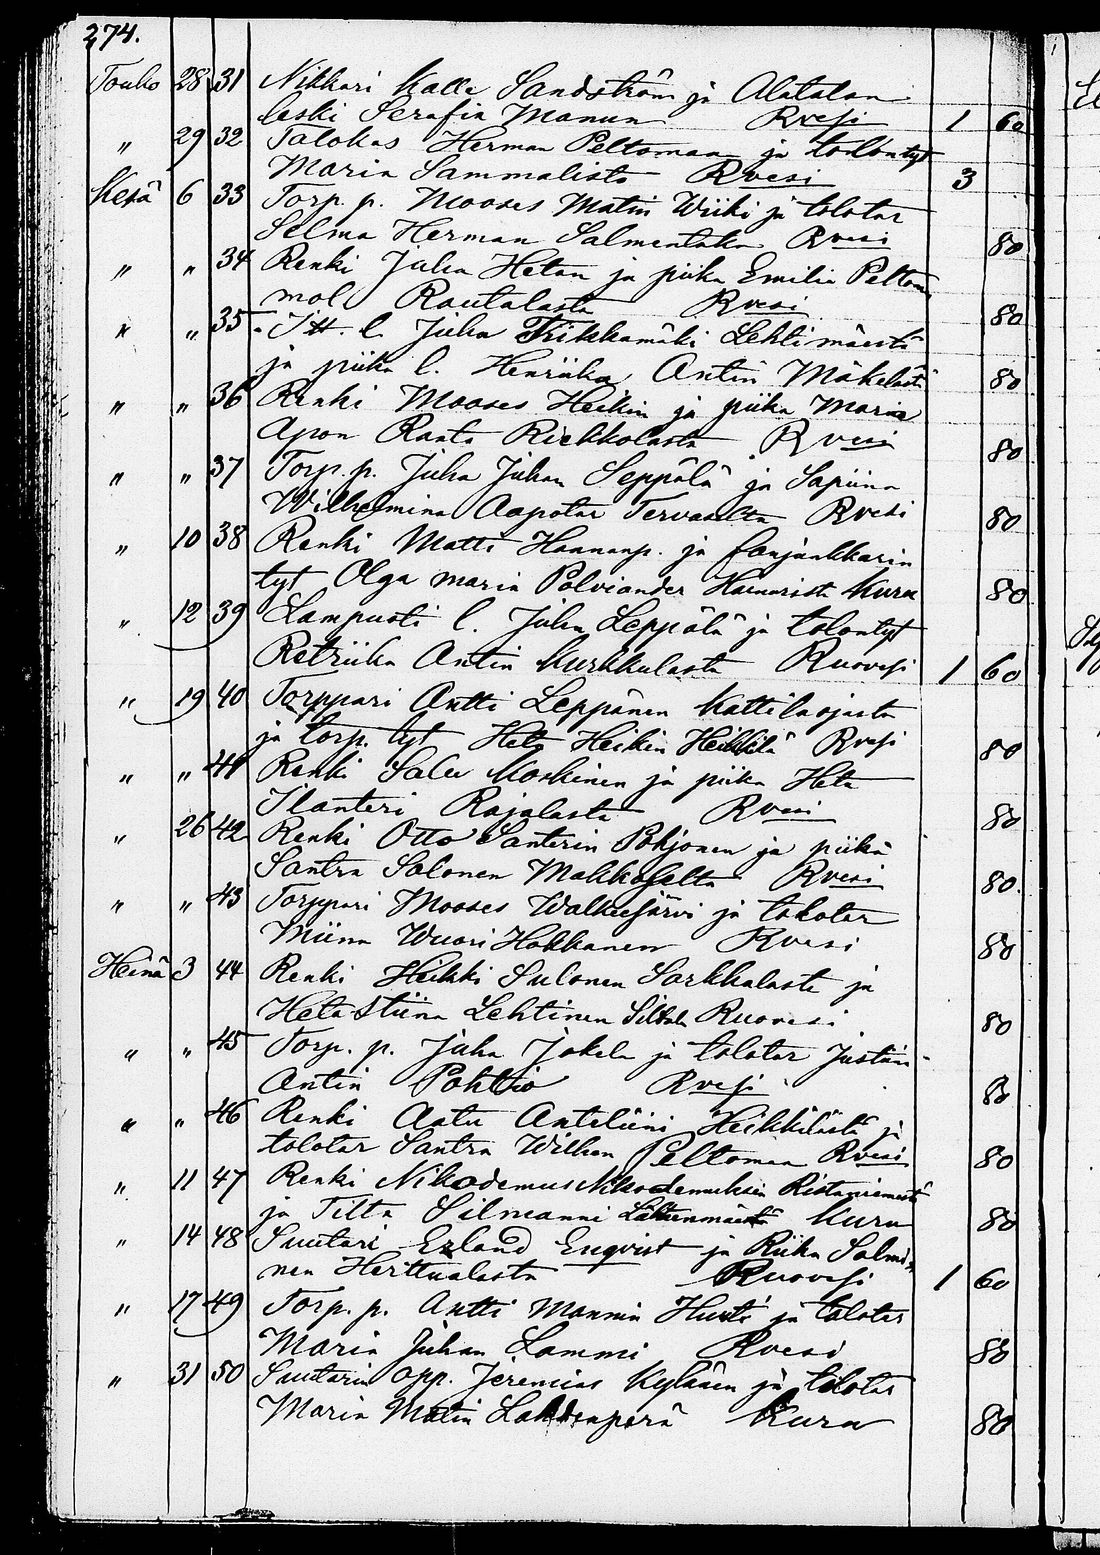 274.
Touko 28 31 Nikkari Kalle Sandström ja Alatalon
leski Serafia Manun Rvesi 1 60
" 29 32 Talokas Herman Peltomaa ja talontyt
Maria Sammalisto Rvesi 3
Kesä 6 33 Torp. p. Mooses Matin Wiiki ja tolotar
Selma Herman Salmentaka Rvesi 80
" " 34 Renki Juha Hetan ja piika Emilia Peltom
mol Rautalasta Rvesi 80
" " 35 l. Juha Trikkamäki Lehtimäestä
ja piika l. Henriika Antin Mäkelästä 80
" " 36 Renki Mooses Heikin ja piika Maria
Apon Ranta Riekkolasta Rvesi 80
" " 37 Torp. p. Juha Juhan Seppälä ja Sapiina
Wilhelmina Aapotar Tervaselta Rvesi 80
" 10 38 Renki Matti Haananp. ja fanjunkkarin
tyt Olga Maria Polviander Kuru 80
" 12 39 Lampuoti l. Juha Leppälä ja talontyt
Retriika Antin Kurkkulasta Ruovesi 1 60
" 19 40 Torppari Antti Leppänen Kattilaojasta
ja torp. tyt Heta Heikin Heikkilä Rvesi 80
" " 41 Renki Salu Koskinen ja piika Heta
Ilanteri Rajalasta Rvesi 80
" 26 42 Renki Otto Santerin Pohjonen ja piika
Santra Salonen Makkoselta Rvesi 80
" " 43 Torppari Mooses Walkeejärvi ja talotar
Miina Wuori Hokkanen Rvesi 80
Heinä 3 44 Renki Heikki Sulonen Sarkkalasta ja
Heta Stiina Lehtinen Siltala Ruovesi 80
" " 45 Torp. p. Juha Jokela ja talotar Justiina
Antin Pohtio Rvesi 80
" " 46 Renki Aatu Anteliini Heikkilästä ja
tolotar Santra Wilhon Peltomaa Rvesi 80
" 11 47 Renki Nikodemus Nikodemuksen Ristaniemestä
ja Tilta Silmanni Lähteenmäestä Kuru 80
" 14 48 Suutari Erland Enqvist ja Riika Salmi
nen Herttualasta Ruovesi 1 60
" 17 49 Torp. p. Antti Mannin Hursti ja talotar
Maria Juhan Lammi Rvesi 80
" 31 50 Suutarin opp. Jeremias Kylänen ja talotar
Maria Matin Lahdenperä Kuru 80